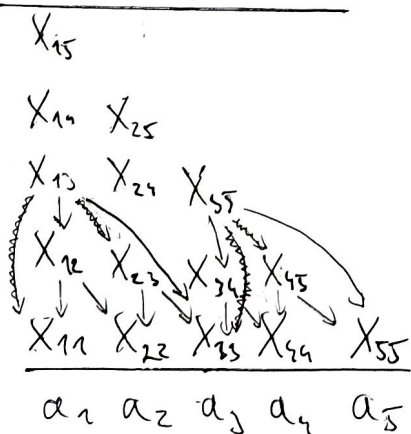 X₁₅
X₁₄ X₂₅
X₁₃ X₂₄ X₃₅
X₁₂ X₂₃ X₃₄ X₄₅
X₁₁ X₂₂ X₃₃ X₄₄ X₅₅
a₁ a₂ a₃ a₄ a₅